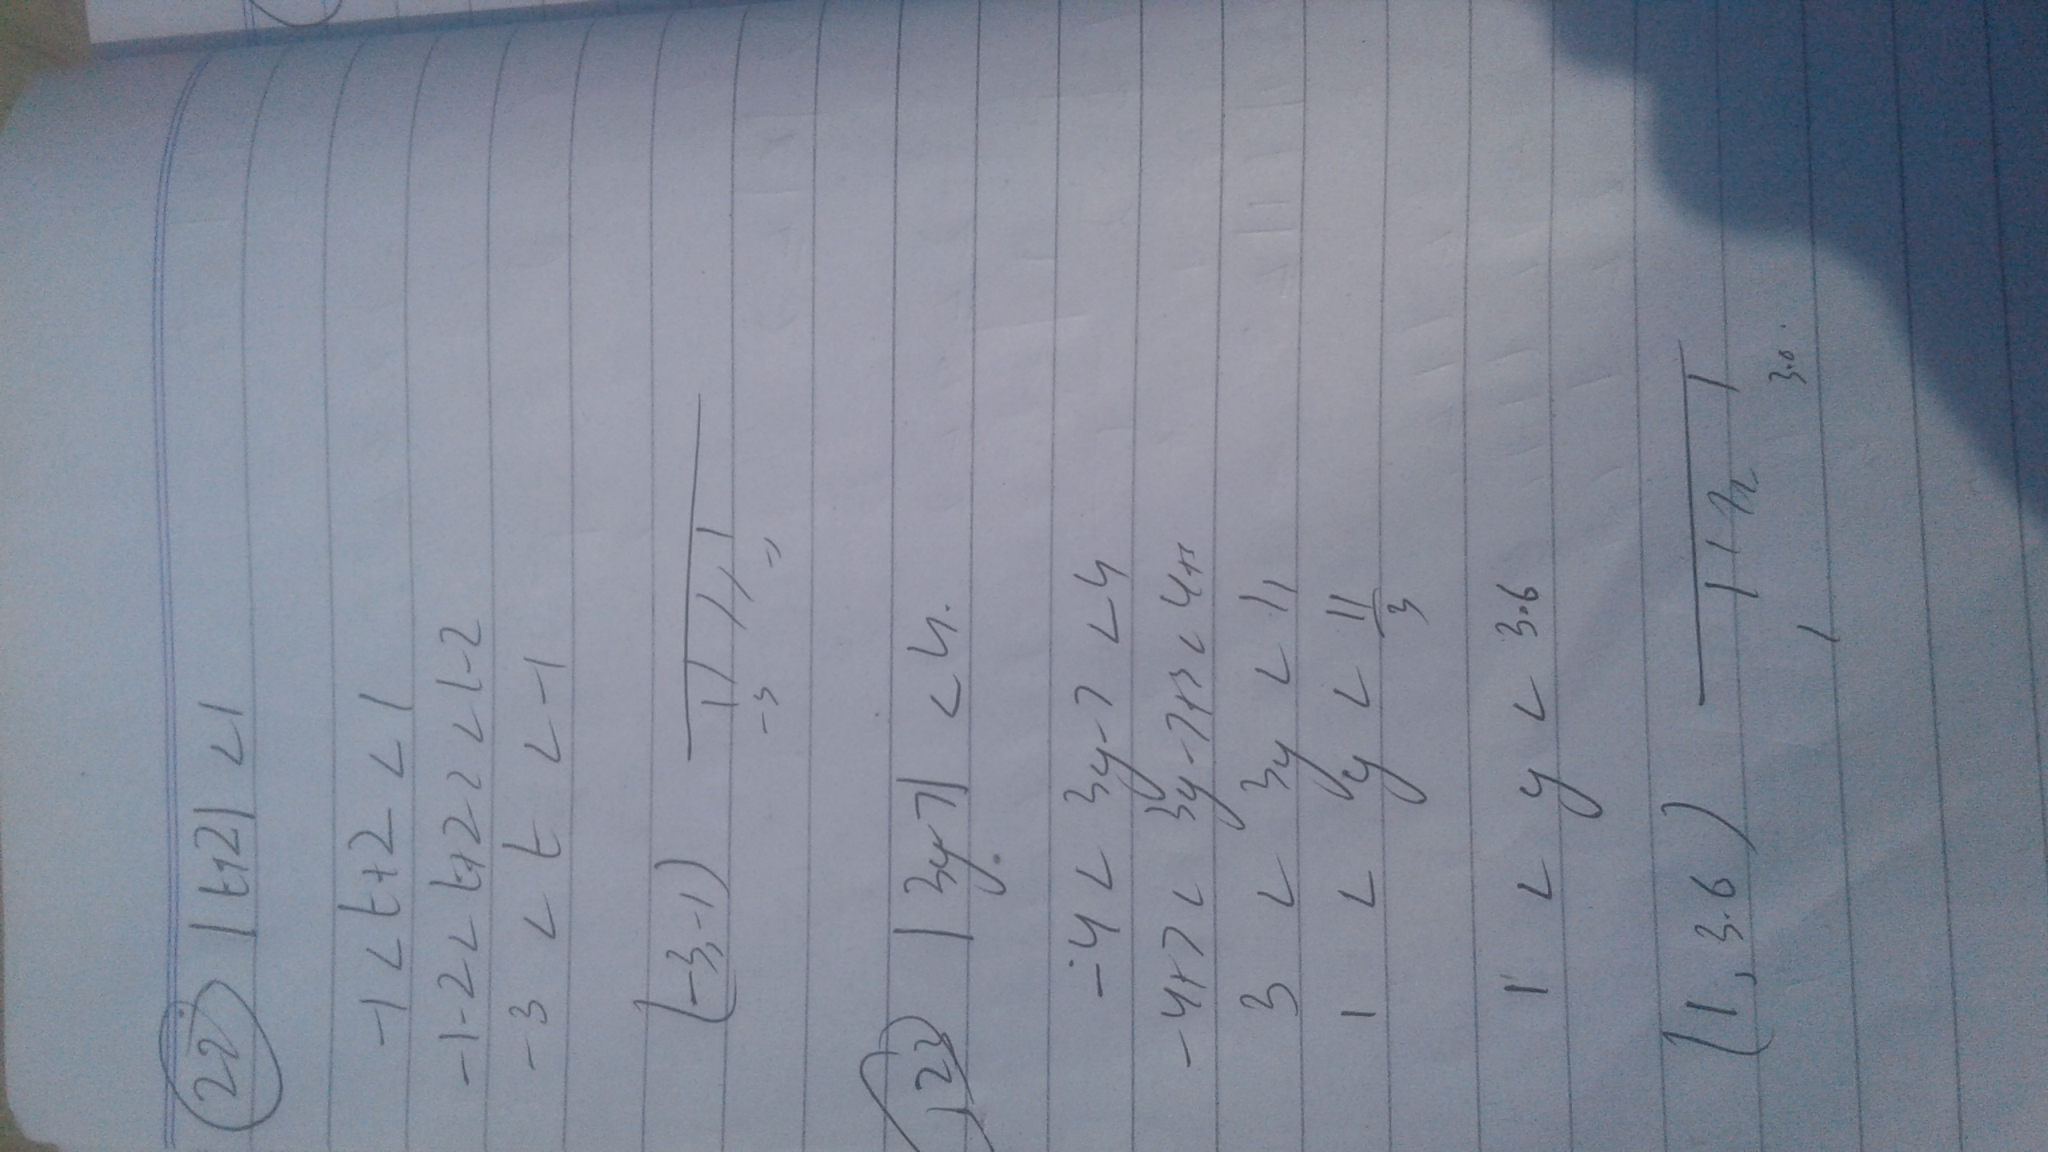 22 |t+2| < 1
-1 < t+2 < 1
-1-2 < t+2-2 < 1-2
-3 < t < -1
(-3,-1)
-3 -1
23 |3y-7| < 4.
-4 < 3y-7 < 4
-4+7 < 3y-7+7 < 4+7
3 < 3y < 11
1 < y < 11/3
1 < y < 3.6
(1, 3.6)
1 3.6